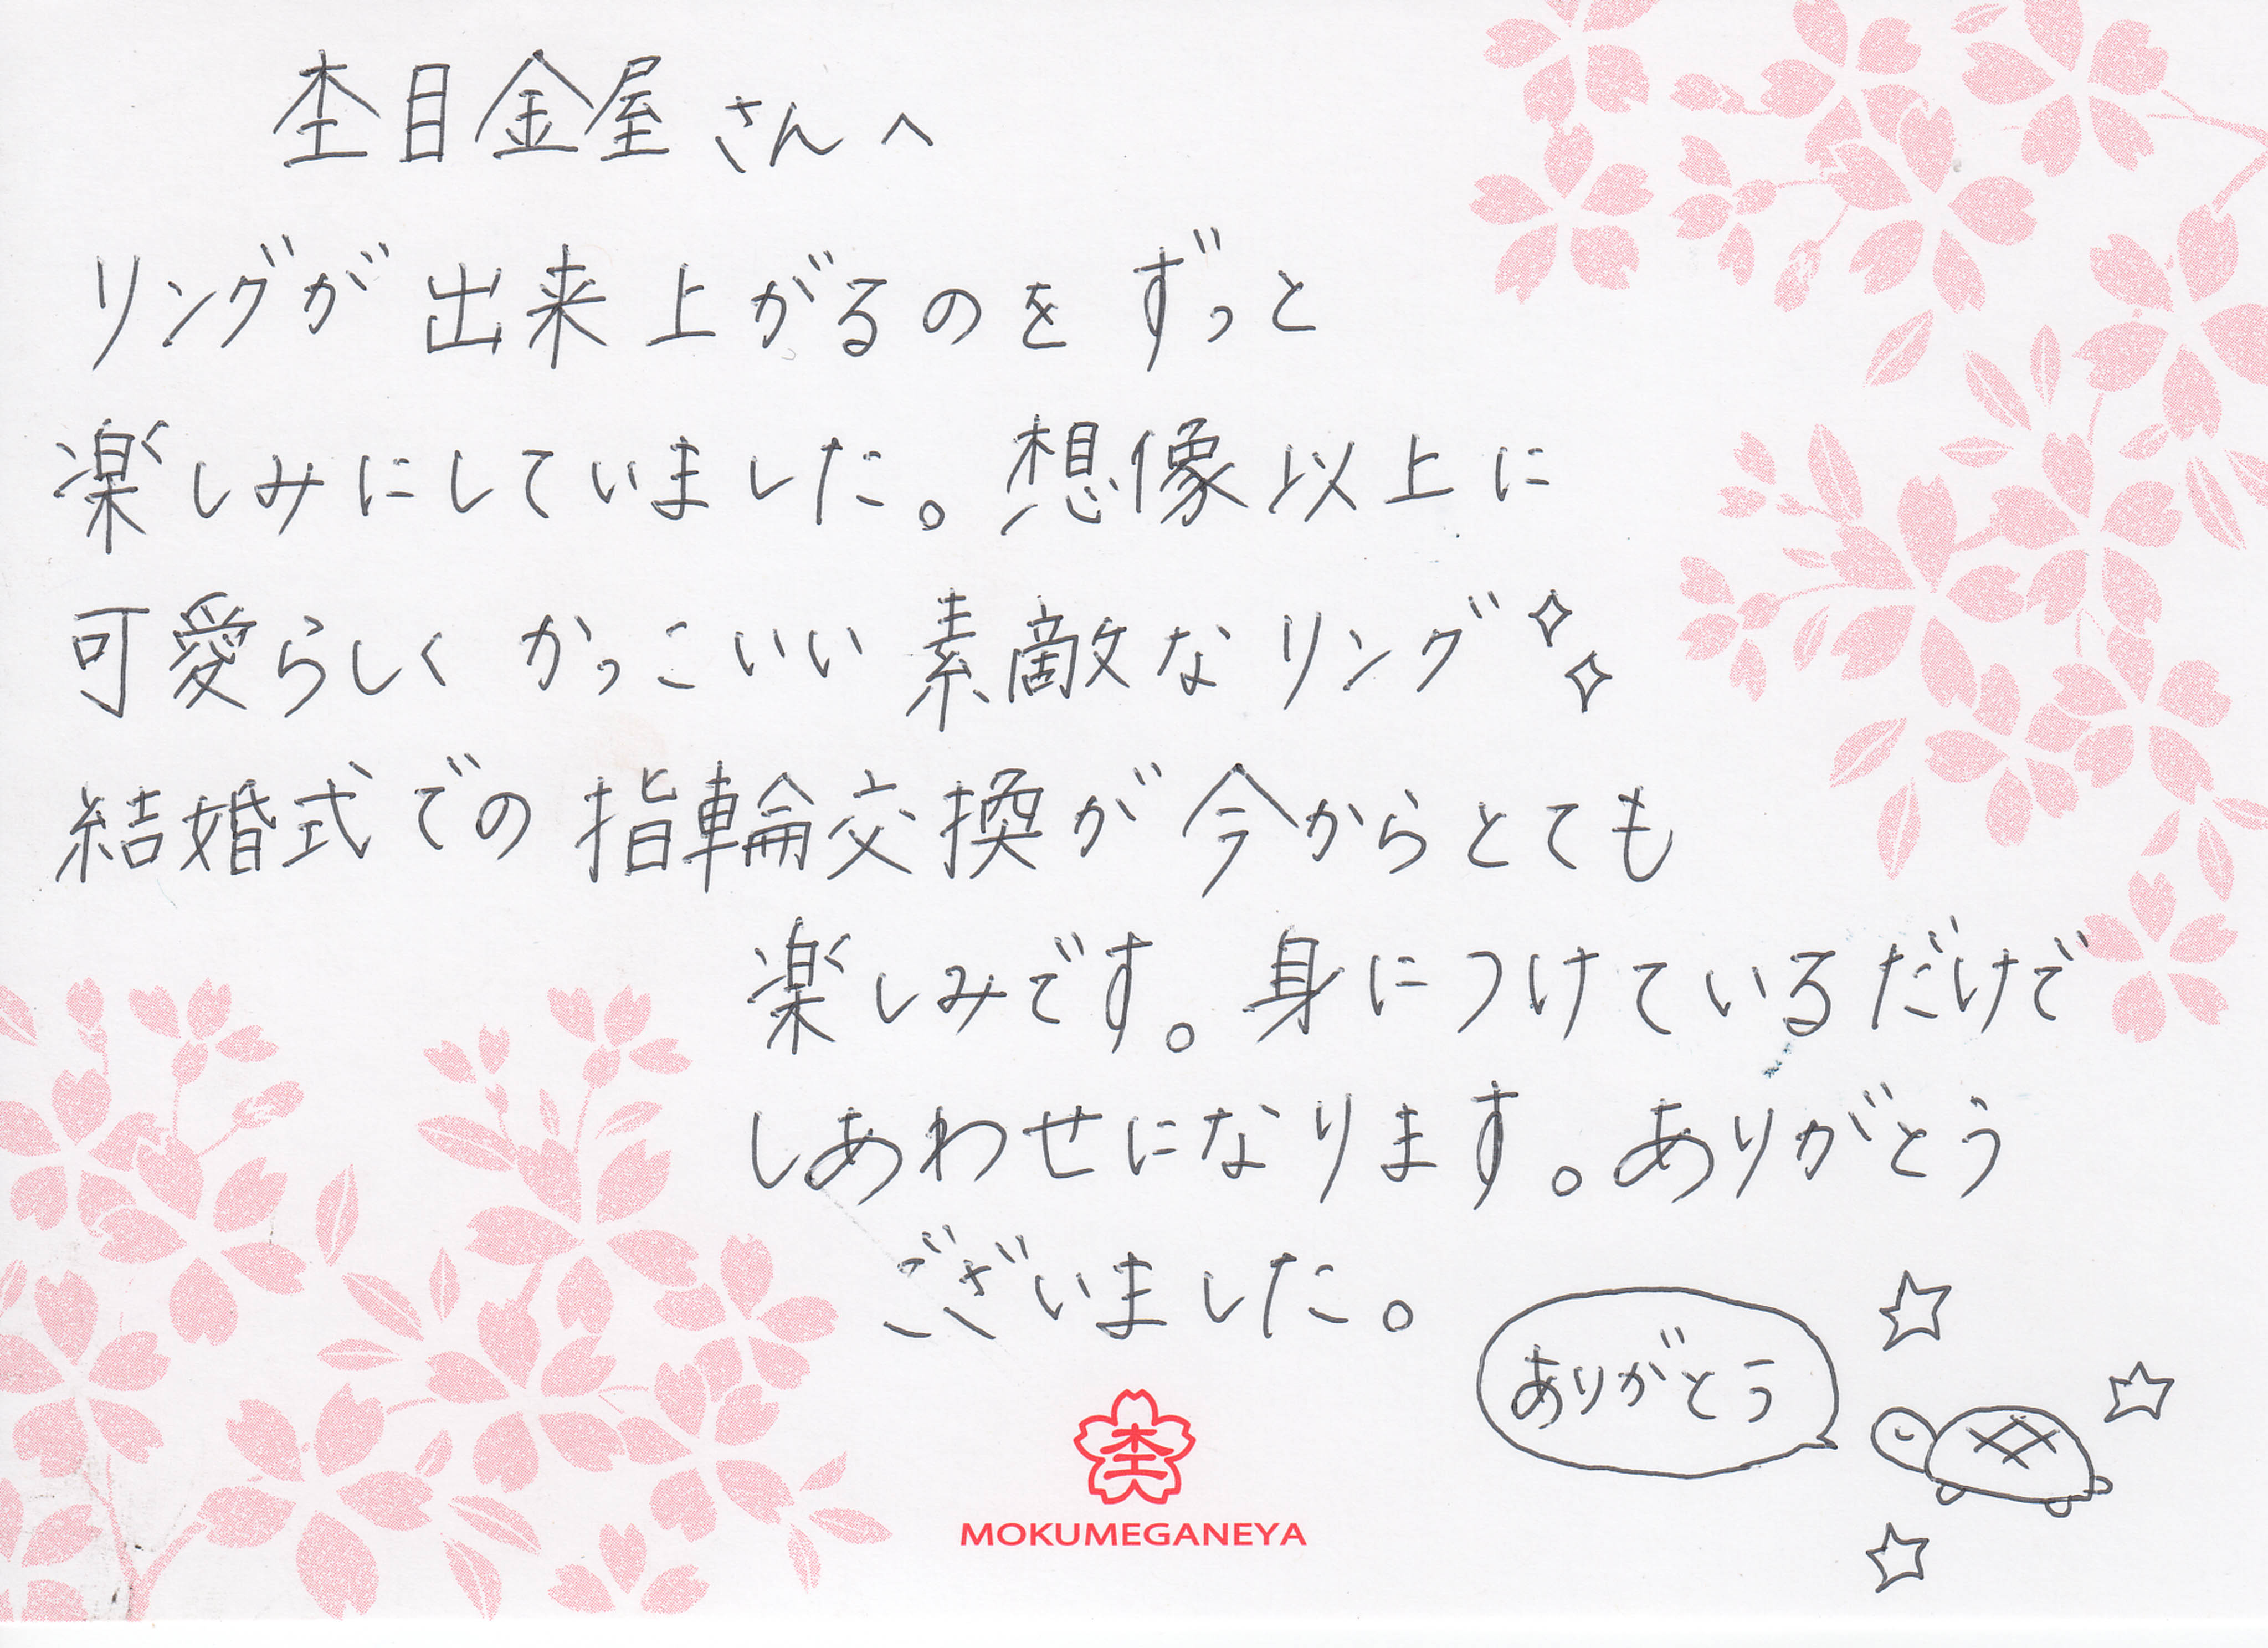 杢目金屋さんへ
リングが出来上がるのをずっと
楽しみにしていました。想像以上に
可愛らしくかっこいい素敵なリング✧✧
結婚式での指輪交換が今からとても
楽しみです。身につけているだけで
しあわせになります。ありがとう
ございました。
ありがとう
杢
MOKUMEGANEYA